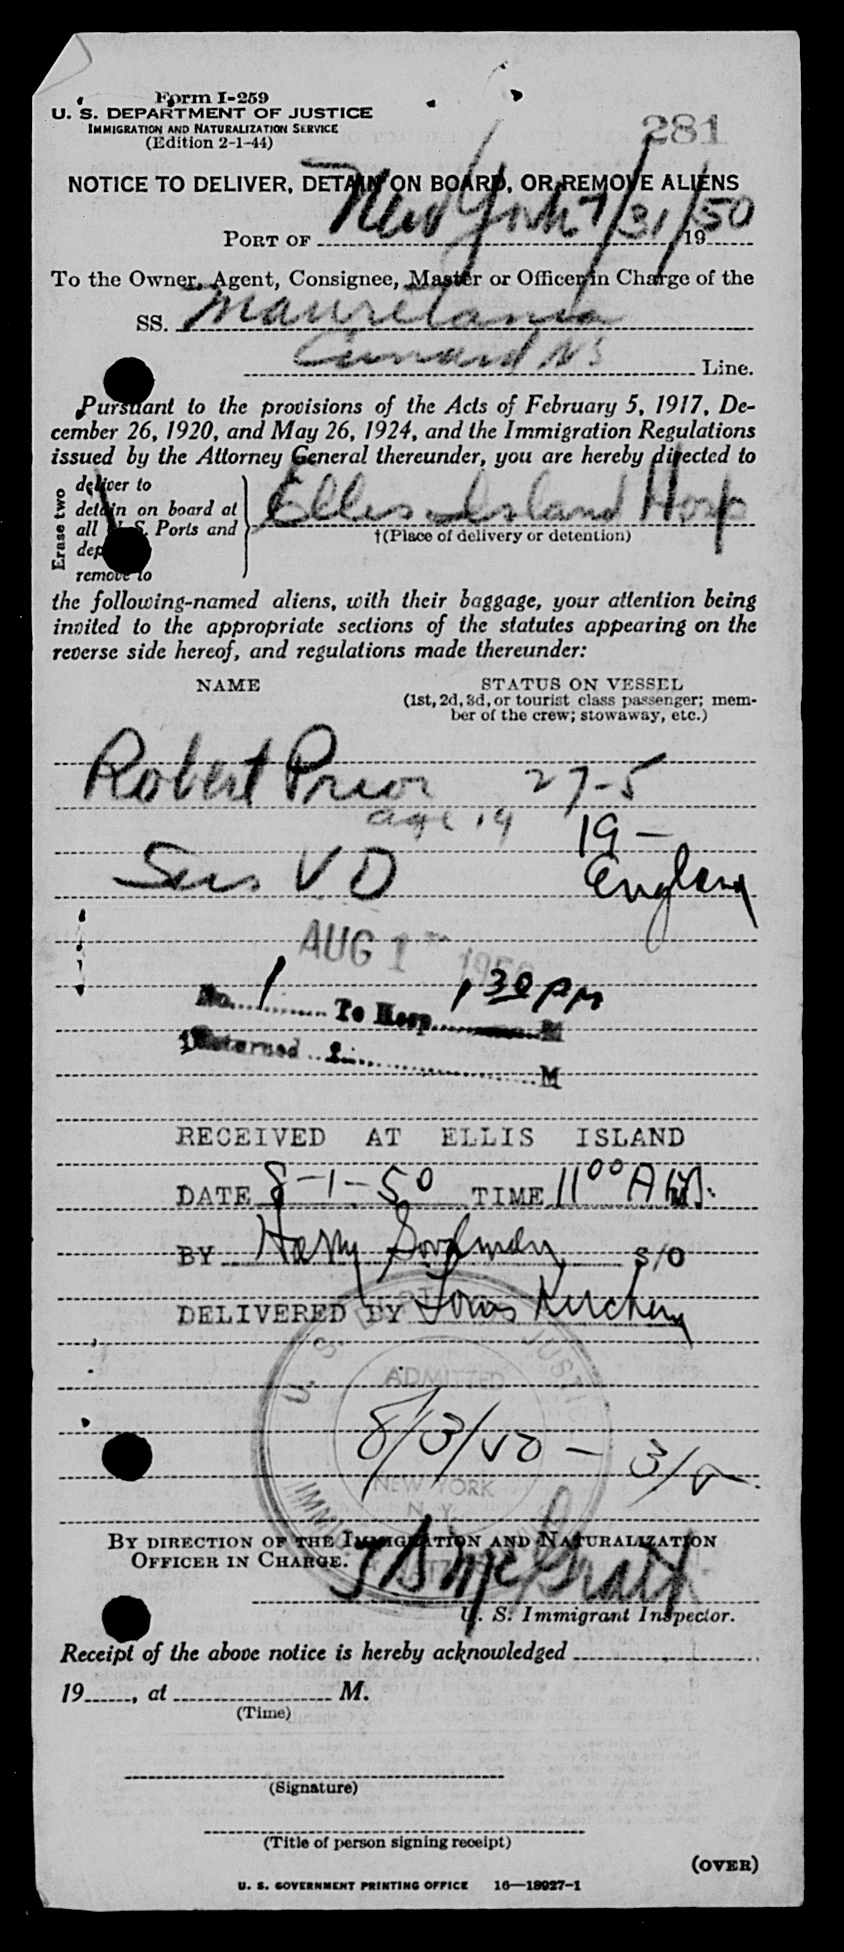 Form I-259
U. S. DEPARTMENT OF JUSTICE
IMMIGRATION AND NATURALIZATION SERVICE
(Edition 2-1-44)
281
NOTICE TO DELIVER, DETAIN ON BOARD, OR REMOVE ALIENS
PORT OF New York 7/31/50 19
To the Owner, Agent, Consignee, Master or Officer in Charge of the
SS. Mauretania
Cunard Line.
Pursuant to the provisions of the Acts of February 5, 1917, De-
cember 26, 1920, and May 26, 1924, and the Immigration Regulations
issued by the Attorney General thereunder, you are hereby directed to
Erase two
deliver to
detain on board at
all U. S. Ports and
remove to
Ellis Island Hosp
†(Place of delivery or detention)
the following-named aliens, with their baggage, your attention being
invited to the appropriate sections of the statutes appearing on the
reverse side hereof, and regulations made thereunder:
NAME STATUS ON VESSEL
(1st, 2d, 3d, or tourist class passenger; mem-
ber of the crew; stowaway, etc.)
Robert Prior 27-5
age 19 19 -
V D England
AUG 1 1950
No. 1 To Hosp. 1 30 PM M
Returned M
RECEIVED AT ELLIS ISLAND
DATE 8-1-50 TIME 11 00 A M.
BY Harry S/O
DELIVERED BY Louis
U. S. JUSTICE
ADMITTED
8/3/50 -
NEW YORK
N. Y.
BY DIRECTION OF THE IMMIGRATION AND NATURALIZATION
OFFICER IN CHARGE.
McGrath
U. S. Immigrant Inspector.
Receipt of the above notice is hereby acknowledged
19, at M.
(Time)
(Signature)
(Title of person signing receipt)
(OVER)
U. S. GOVERNMENT PRINTING OFFICE 16—18927-1